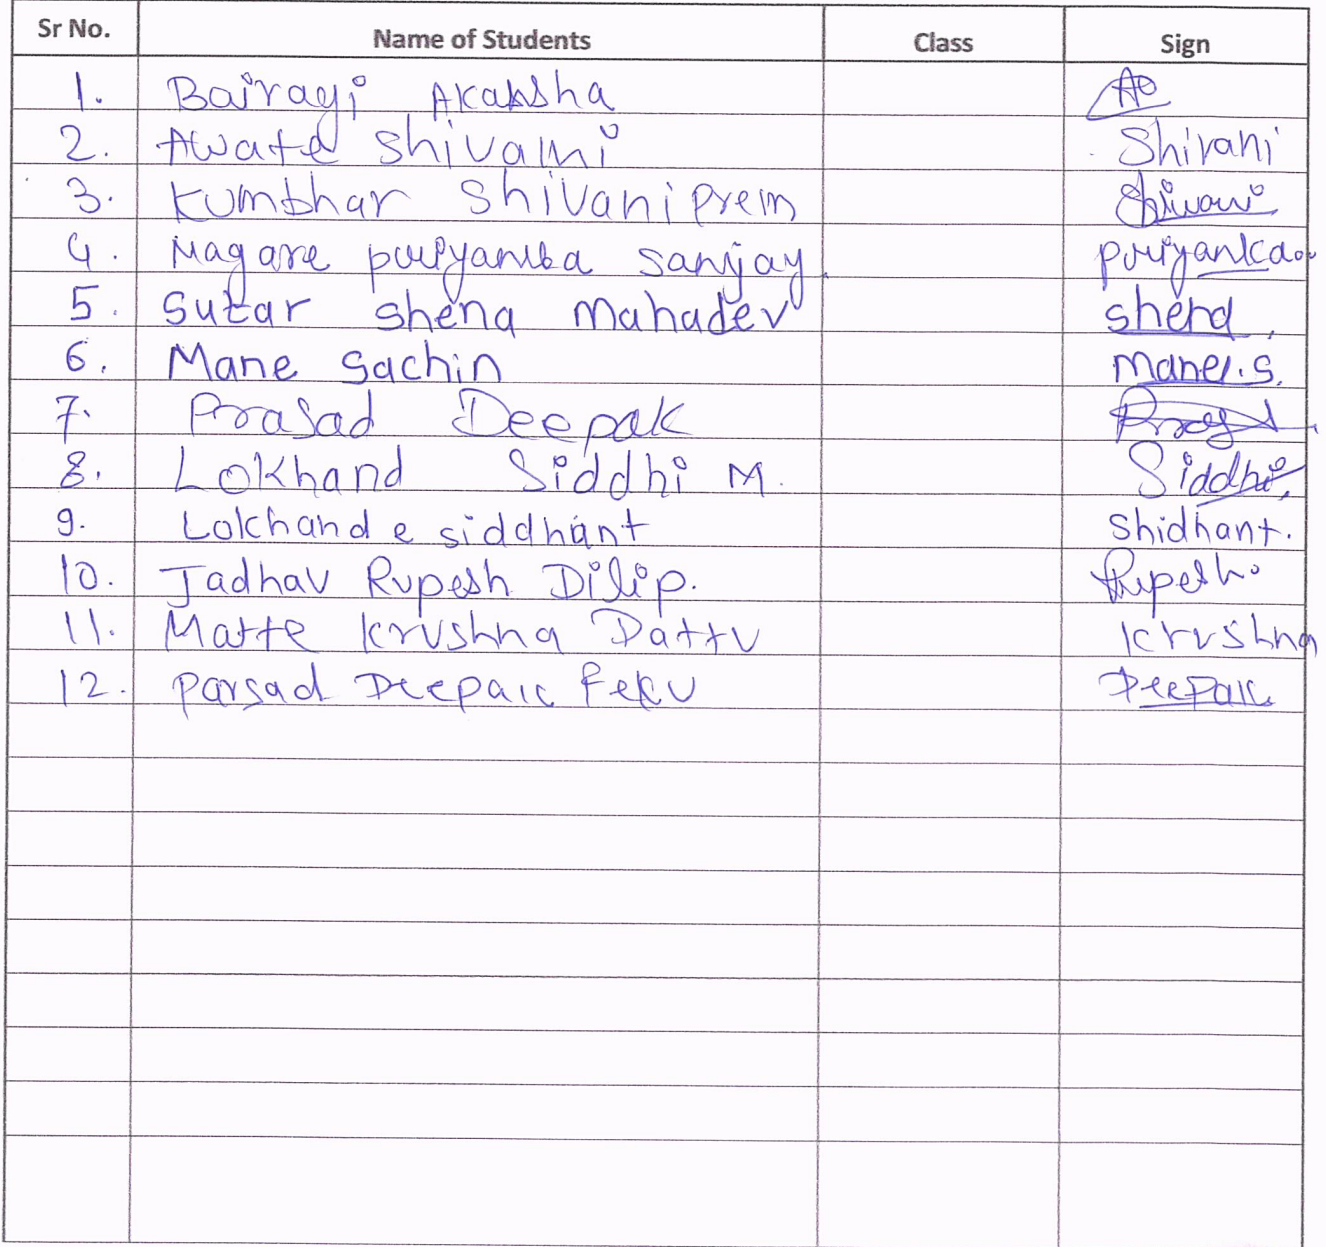 Sr No. Name of Students Class Sign
1. Bairagi Akaksha
2. Awate Shivani Shivani
3. Kumbhar Shivani Prem Shivani
4. Magare puriyanka sanjay puriyanka
5. Sutar shena Mahadev shena
6. Mane Sachin Mane.S.
7. Prasad Deepak
8. Lokhand Siddhi M. Siddhi
9. Lokhande siddhant Shidhant.
10. Jadhav Rupesh Dilip. Rupesh
11. Matte Krushna Dattu Krushna
12. Parsad Deepak Feku Deepak